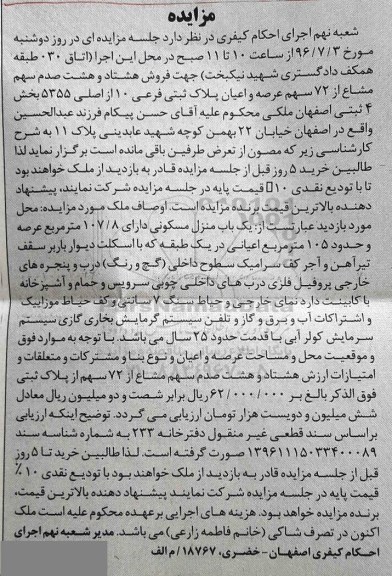 مزایده
شعبه نهم اجرای احکام کیفری در نظر دارد جلسه مزایده ای در روز دوشنبه
مورخ ۹۶/۷/۳ از ساعت ۱۰ تا ۱۱ صبح در محل این اجرا (اتاق ۰۳۰ طبقه
همکف دادگستری شهید نیکبخت) جهت فروش هشتاد و هشت صدم سهم
مشاع از ۷۲ سهم عرصه و اعیان پلاک ثبتی فرعی ۱۰ از اصلی ۵۳۵۵ بخش
۴ ثبتی اصفهان ملکی محکوم علیه آقای حسن پیکام فرزند عبدالحسین
واقع در اصفهان خیابان ۲۲ بهمن کوچه شهید عابدینی پلاک ۱۱ به شرح
کارشناسی زیر که مصون از تعرض طرفین باقی مانده است برگزار نماید لذا
طالبین خرید ۵ روز قبل از جلسه مزایده قادر به بازدید از ملک خواهند بود
تا با تودیع نقدی ۱۰٪ قیمت پایه در جلسه مزایده شرکت نمایند، پیشنهاد
دهنده بالاترین قیمت برنده مزایده است. اوصاف ملک مورد مزایده: محل
مورد بازدید عبارتست از: یک باب منزل مسکونی دارای ۱۰۷/۸ مترمربع عرصه
و حدود ۱۰۵ مترمربع اعیانی در یک طبقه که با اسکلت دیوار باربر سقف
تیرآهن و آجر کف سرامیک سطوح داخلی (گچ و رنگ) درب و پنجره های
خارجی پروفیل فلزی درب های داخلی چوبی سرویس و حمام و آشپزخانه
با کابینت دارد نمای خارجی و حیاط سنگ ۷ سانتی و کف حیاط موزاییک
و اشتراکات آب و برق و گاز و تلفن سیستم گرمایش بخاری گازی سیستم
سرمایش کولر آبی با قدمت حدود ۲۵ سال می باشد. با توجه به موارد فوق
و موقعیت محل و مساحت عرصه و اعیان و نوع بنا و مشترکات و متعلقات و
امتیازات ارزش هشتاد و هشت صدم سهم مشاع از ۷۲ سهم از پلاک ثبتی
فوق الذکر بالغ بر ۶۲/۰۰۰/۰۰۰ ریال برابر شصت و دو میلیون ریال معادل
شش میلیون و دویست هزار تومان ارزیابی می گردد. توضیح اینکه ارزیابی
براساس سند قطعی غیر منقول دفترخانه ۲۳۳ به شماره شناسه سند
۱۳۹۶۱۱۱۵۰۳۳۴۰۰۰۸۹ صورت گرفته است. لذا طالبین خرید تا ۵ روز
قبل از جلسه مزایده قادر به بازدید از ملک خواهند بود با تودیع نقدی ۱۰٪
قیمت پایه در جلسه مزایده شرکت نمایند پیشنهاد دهنده بالاترین قیمت،
برنده مزایده خواهد بود. هزینه های اجرایی برعهده محکوم علیه است ملک
اکنون در تصرف شاکی (خانم فاطمه زارعی) می باشد. مدیر شعبه نهم اجرای
احکام کیفری اصفهان - خضری، ۱۸۷۶۷/م الف